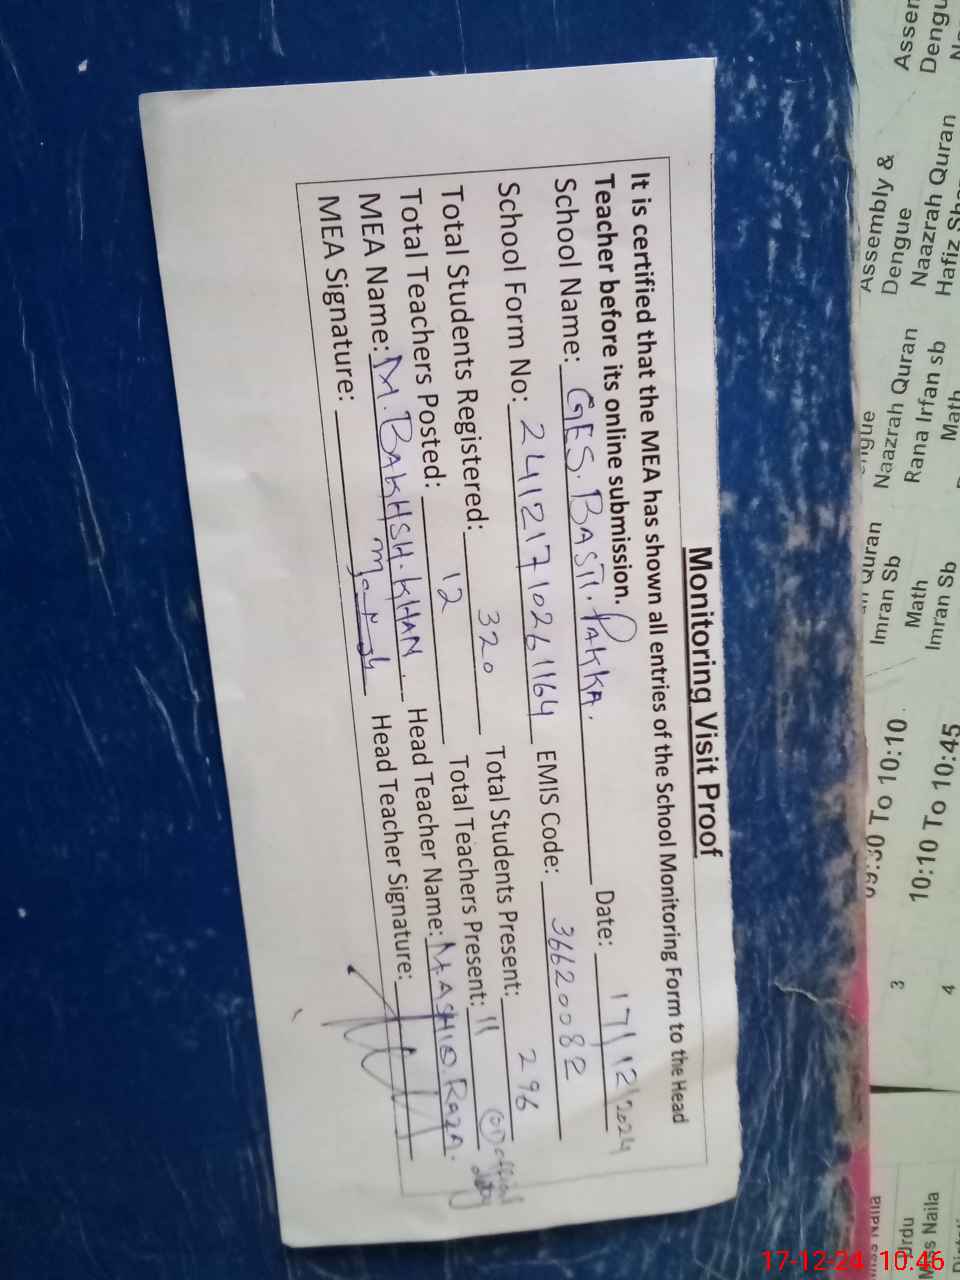 Monitoring Visit Proof
It is certified that the MEA has shown all entries of the School Monitoring Form to the Head
Teacher before its online submission.
School Name: GES. BASTI. PAKKA. Date: 17/12/2024
School Form No: 24121710261164 EMIS Code: 36620082
Total Students Registered: 320 Total Students Present: 296
Total Teachers Posted: 12 Total Teachers Present: 11 01 official duty
MEA Name: M. BAKHSH. KHAN Head Teacher Name: M. ASHIQ. RAZA.
MEA Signature: Head Teacher Signature:
Assembly &
Dengue
Naazrah Quran
Naazrah Quran
Rana Irfan sb
Math
Quran
Imran Sb
Math
Imran Sb
To 10:10
10:10 To 10:45
3
4
Assem
Dengu
Urdu
Miss Naila
17-12-24 10:46